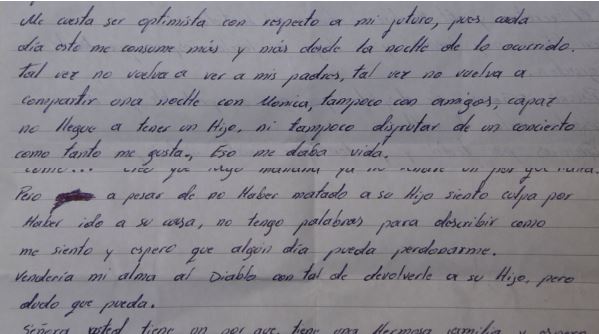 Me cuesta ser optimista con respecto a mi futuro, pues cada
día esto me consume más y más desde la noche de lo ocurrido.
Tal vez no vuelva a ver a mis padres, tal vez no vuelva a
compartir una noche con Monica, tampoco con amigos, capaz
no llegue a tener un Hijo, ni tampoco disfrutar de un concierto
como tanto me gusta., Eso me daba vida.
Pero a pesar de no Haber matado a su Hijo siento culpa por
Haber ido a su casa, no tengo palabras para describir como
me siento y espero que algún día pueda perdonarme.
Vendería mi alma al Diablo con tal de devolverle a su Hijo, pero
dudo que pueda.
Señora usted tiene un por que, tiene una Hermosa familia y espero